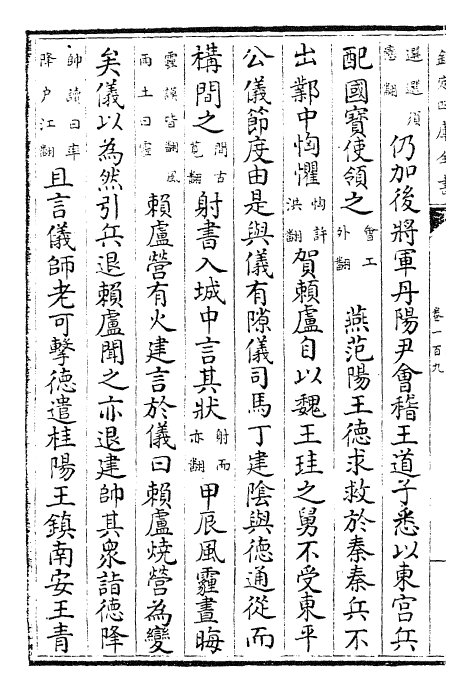 欽定四庫全書
卷一百九
選選須戀翻仍加後將軍丹陽尹會稽王道子悉以東宮兵
配國寶使領之會工外翻燕范陽王德求救於秦秦兵不
出鄴中恟懼恟許洪翻賀賴盧自以魏王珪之舅不受東平
公儀節度由是與儀有隙儀司馬丁建陰與德通從而
構間之間古莧翻射書入城中言其狀射而亦翻甲辰風霾晝晦
霾謨皆翻風雨土曰霾賴盧營有火建言於儀曰賴盧燒營為變
矣儀以為然引兵退賴盧聞之亦退建帥其衆詣德降
帥讀曰率降户江翻且言儀師老可擊德遣桂陽王鎮南安王青